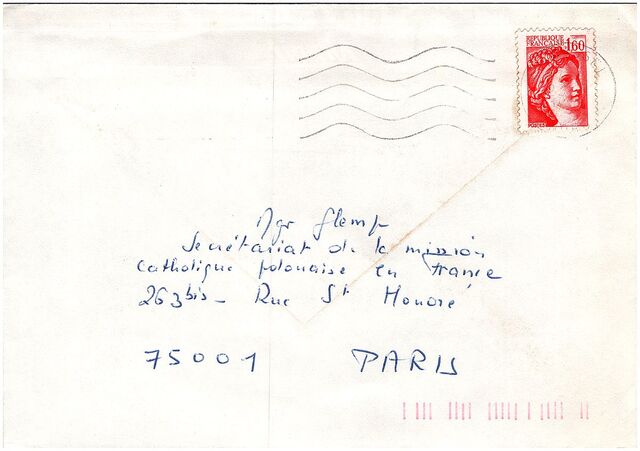 REPUBLIQUE
FRANCAISE 1,60
POSTES
Mgr Glemp
Secrétariat de la mission
Catholique polonaise en France
263bis - Rue St Honoré
75001 PARIS